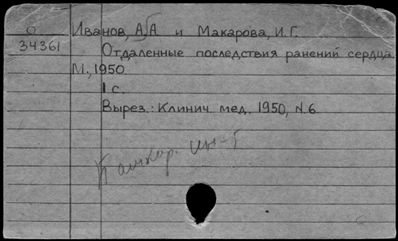 О
34361
Иванов, А.А. и Макарова, И.Г.
Отдаленные последствия ранений сердца.
М., 1950.
1 с.
Вырез.: Клинич. мед., 1950, N.6.
ин-т